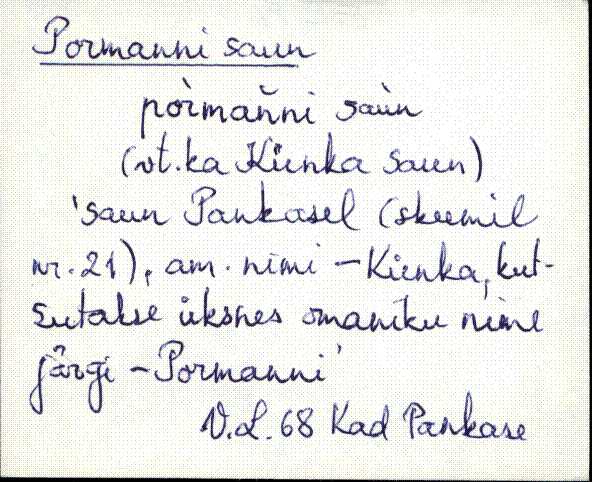 Pormanni saun
pòrmăn̆ni saùn
(vt. ka Kienka saun)
'saun Pankasel (skeemil
nr. 21), am. nimi - Kienka, kut-
sutakse üksnes omaniku nime
järgi - Pormanni'
V.L. 68 Kad Pankase